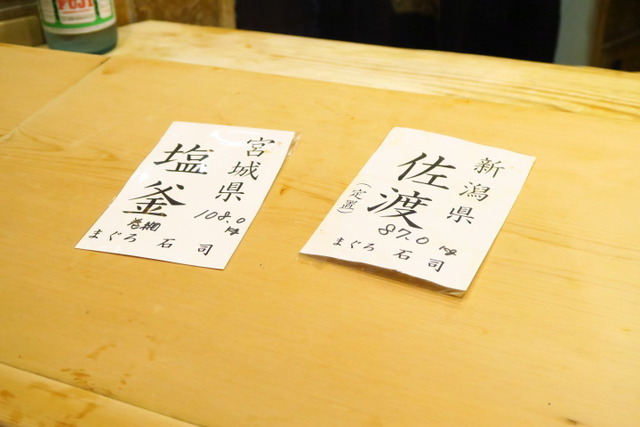 FUJI
宮城県
塩釜
108.0kg
巻網
まぐろ 石司
新潟県
佐渡
(定置)
87.0kg
まぐろ 石司